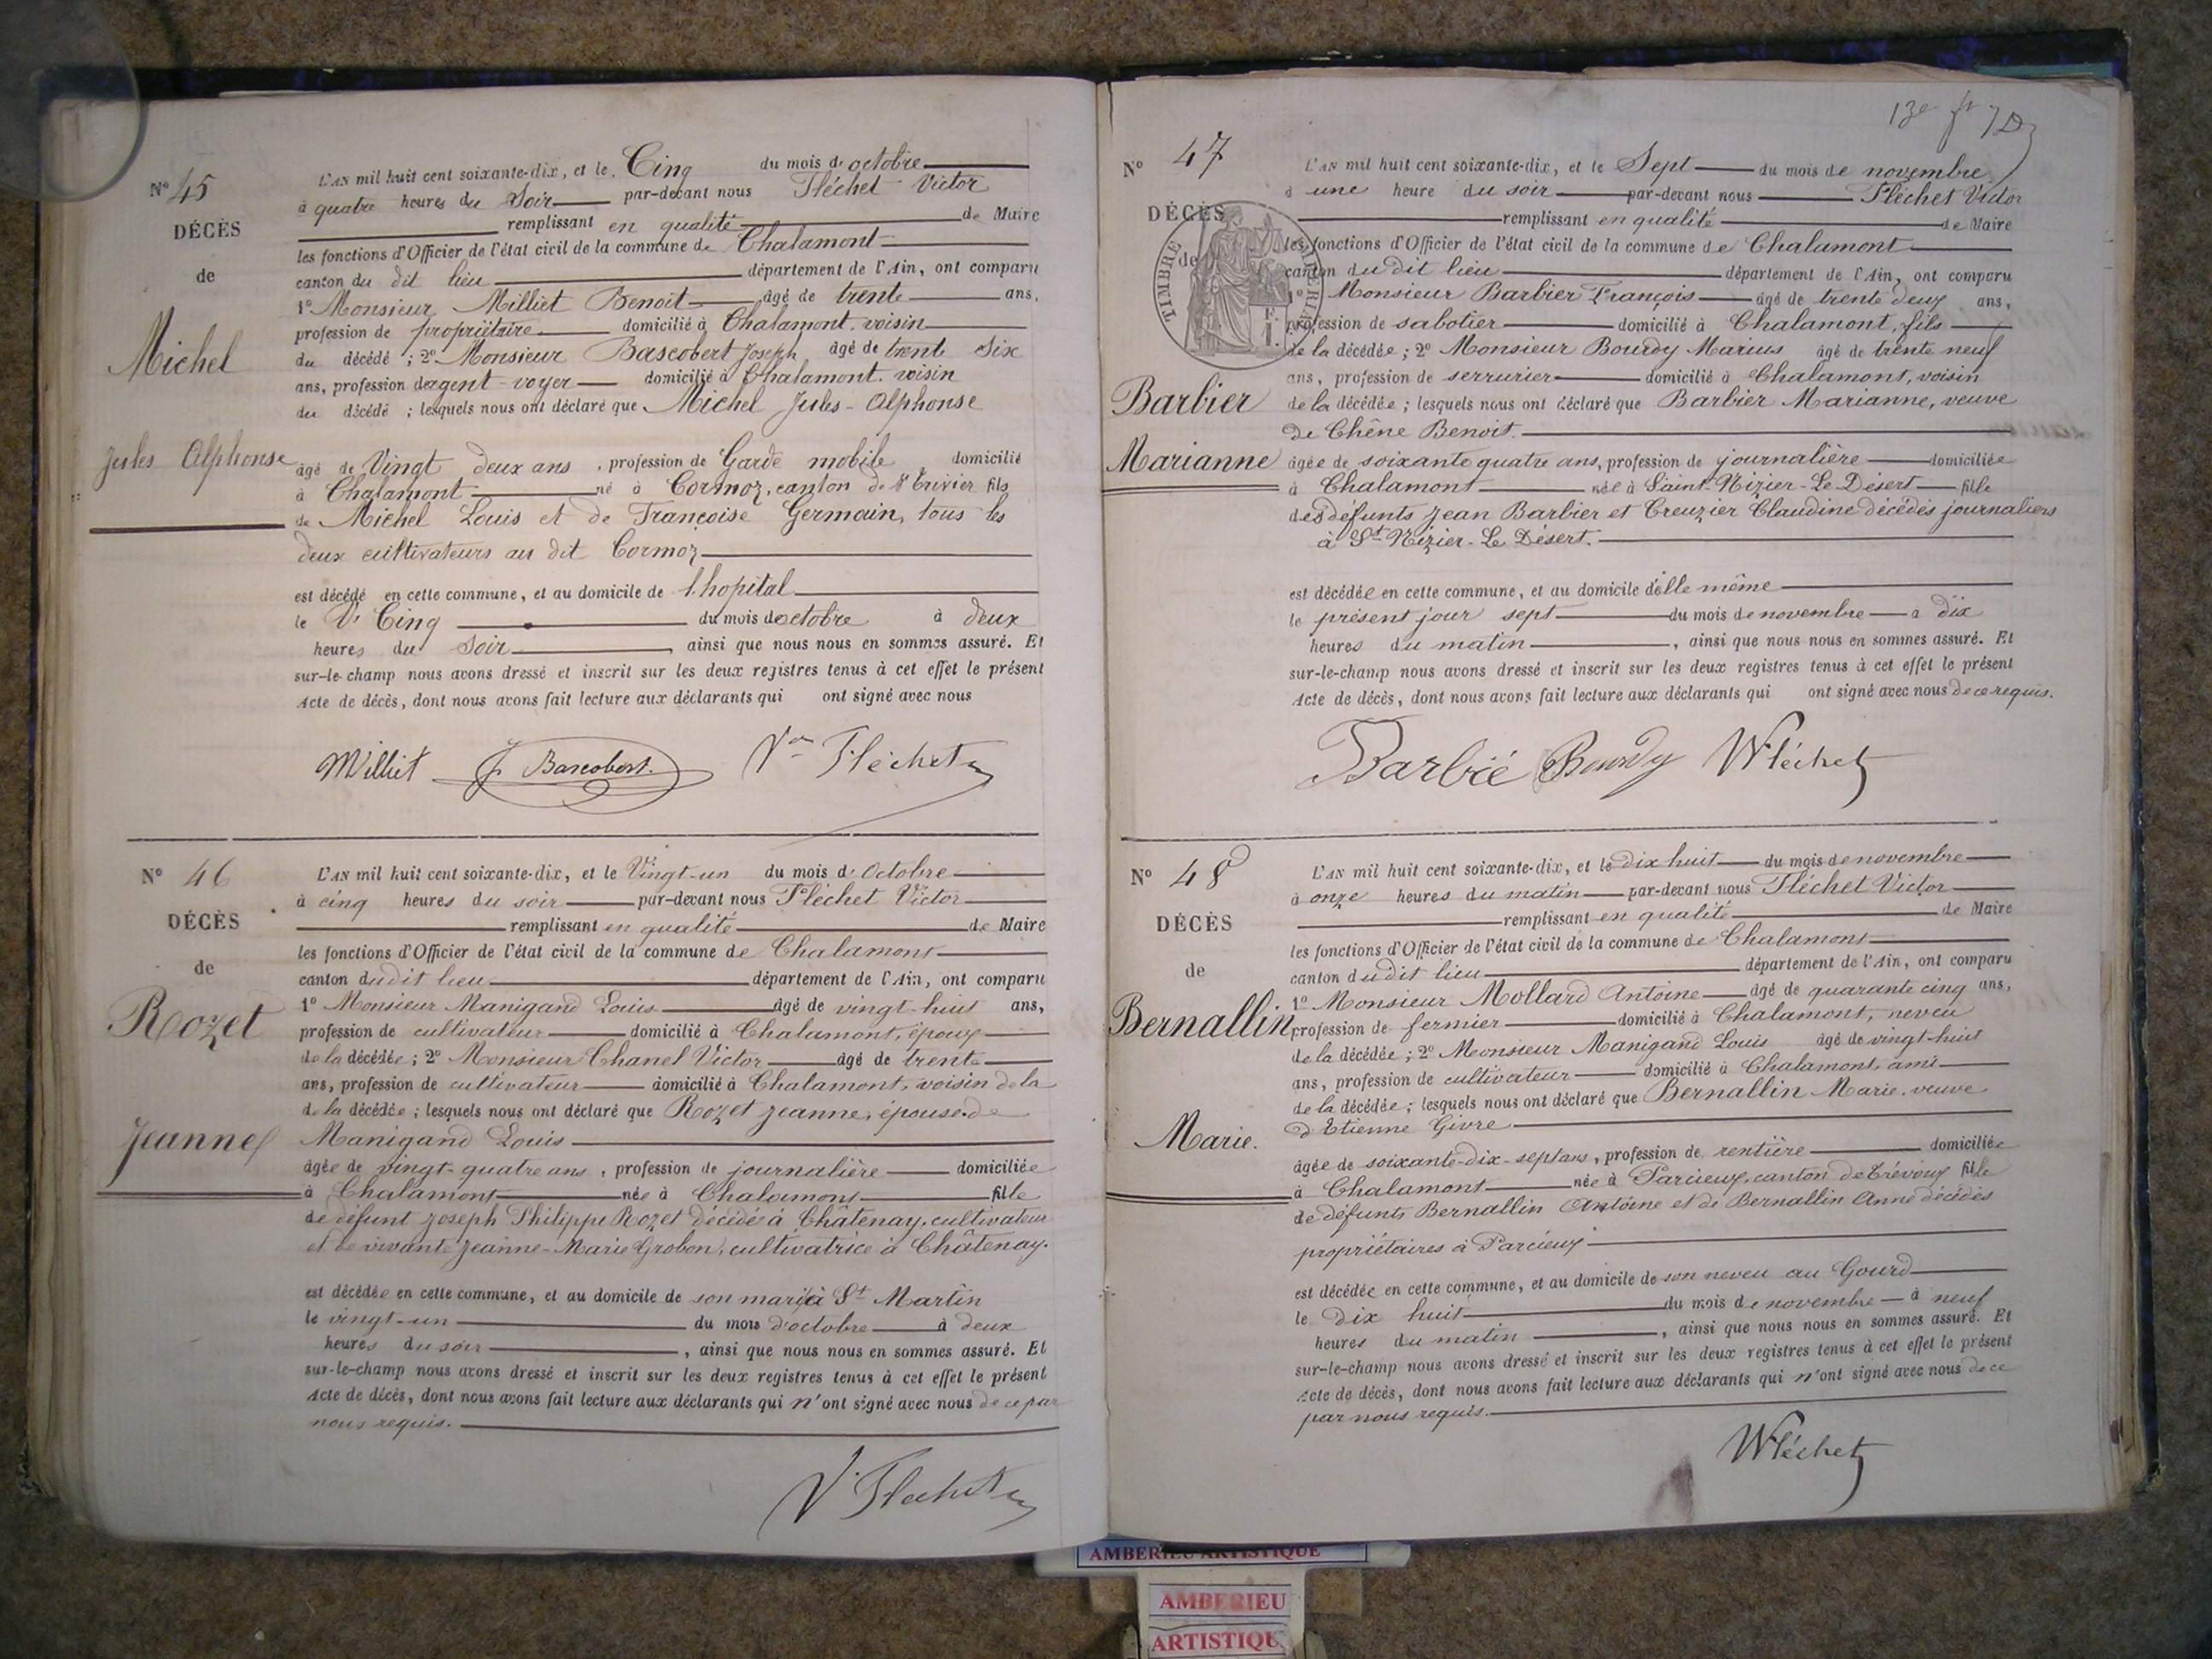 Nº 45
DÉCÈS
de
Michel
Jules Alphonse
L'AN mil huit cent soixante-dix, et le Cinq du mois d' octobre
à quatre heures du Soir par-devant nous Fléchet Victor
remplissant en qualité de Maire
les fonctions d'Officier de l'état civil de la commune de Chalamont
canton du dit lieu département de l'Ain, ont comparu
1º Monsieur Milliet Benoit âgé de trente ans,
profession de propriétaire domicilié à Chalamont, voisin
du décédé ; 2º Monsieur Bascobert Joseph âgé de trente Six
ans, profession d'agent-voyer domicilié à Chalamont. voisin
du décédé ; lesquels nous ont déclaré que Michel Jules-Alphonse
âgé de Vingt deux ans , profession de Garde mobile domicilié
à Chalamont né à Cormoz, canton de St Trivier fils
de Michel Louis et de Françoise Germain, tous les
deux cultivateurs au dit Cormoz
est décédé en cette commune, et au domicile de l'hopital
le Cinq du mois d'octobre à deux
heures du Soir , ainsi que nous nous en sommes assuré. Et
sur-le-champ nous avons dressé et inscrit sur les deux registres tenus à cet effet le présent
Acte de décès, dont nous avons fait lecture aux déclarants qui ont signé avec nous
Milliet J. Bascobert. Vor Fléchet
Nº 46
DÉCÈS
de
Rozet
Jeanne
L'AN mil huit cent soixante-dix, et le Vingt-un du mois d' Octobre
à cinq heures du soir par-devant nous Fléchet Victor
remplissant en qualité de Maire
les fonctions d'Officier de l'état civil de la commune de Chalamont
canton dudit lieu département de l'Ain, ont comparu
1º Monsieur Manigand Louis âgé de vingt-huit ans,
profession de cultivateur domicilié à Chalamont, époux
de la décédée ; 2º Monsieur Chanel Victor âgé de trente
ans, profession de cultivateur domicilié à Chalamont, voisin de la
de la décédée ; lesquels nous ont déclaré que Rozet Jeanne, épouse de
Manigand Louis
âgée de vingt-quatre ans , profession de journalière domiciliée
à Chalamont née à Chalamont fille
de défunt Joseph Philippe Rozet décédé à Châtenay, cultivateur
et de vivante Jeanne-Marie Grobon, cultivatrice à Châtenay.
est décédée en cette commune, et au domicile de son mari à St Martin
le vingt-un du mois d'octobre à deux
heures du soir , ainsi que nous nous en sommes assuré. Et
sur-le-champ nous avons dressé et inscrit sur les deux registres tenus à cet effet le présent
Acte de décès, dont nous avons fait lecture aux déclarants qui n'ont signé avec nous de ce par
nous requis.
V. Fléchet
Nº 47
DÉCÈS
de
TIMBRE IMPÉRIAL
Barbier
Marianne
L'AN mil huit cent soixante-dix, et le Sept du mois de novembre
à une heure du soir par-devant nous Fléchet Victor
remplissant en qualité de Maire
les fonctions d'Officier de l'état civil de la commune de Chalamont
canton du dit lieu département de l'Ain, ont comparu
1º Monsieur Barbier François âgé de trente deux ans,
profession de sabotier domicilié à Chalamont, fils
de la décédée ; 2º Monsieur Bourdy Marius âgé de trente neuf
ans, profession de serrurier domicilié à Chalamont, voisin
de la décédée ; lesquels nous ont déclaré que Barbier Marianne, veuve
de Chêne Benoit.
âgée de soixante quatre ans, profession de journalière domiciliée
à Chalamont née à Saint-Nizier-Le Désert fille
des défunts Jean Barbier et Creuzier Claudine décédés journaliers
à St Nizier-Le Désert.
est décédée en cette commune, et au domicile d'elle même
le présent jour sept du mois de novembre à dix
heures du matin , ainsi que nous nous en sommes assuré. Et
sur-le-champ nous avons dressé et inscrit sur les deux registres tenus à cet effet le présent
Acte de décès, dont nous avons fait lecture aux déclarants qui ont signé avec nous de ce requis.
Barbié Bourdy V. Fléchet
Nº 48
DÉCÈS
de
Bernallin
Marie.
L'AN mil huit cent soixante-dix, et le dix huit du mois de novembre
à onze heures du matin par-devant nous Fléchet Victor
remplissant en qualité de Maire
les fonctions d'Officier de l'état civil de la commune de Chalamont
canton dudit lieu département de l'Ain, ont comparu
1º Monsieur Mollard Antoine âgé de quarante cinq ans,
profession de fermier domicilié à Chalamont, neveu
de la décédée ; 2º Monsieur Manigand Louis âgé de vingt-huit
ans, profession de cultivateur domicilié à Chalamont, ami
de la décédée ; lesquels nous ont déclaré que Bernallin Marie, veuve
d'Etienne Givre
âgée de soixante-dix-sept ans, profession de rentière domiciliée
à Chalamont née à Parcieux, canton de Trévoux fille
de défunts Bernallin Antoine et de Bernallin Anne décédés
propriétaires à Parcieux
est décédée en cette commune, et au domicile de son neveu au Gourd
le dix huit du mois de novembre à neuf
heures du matin , ainsi que nous nous en sommes assuré. Et
sur-le-champ nous avons dressé et inscrit sur les deux registres tenus à cet effet le présent
Acte de décès, dont nous avons fait lecture aux déclarants qui n'ont signé avec nous de ce
par nous requis.
V. Fléchet
AMBERIEU ARTISTIQUE
AMBERIEU
ARTISTIQU